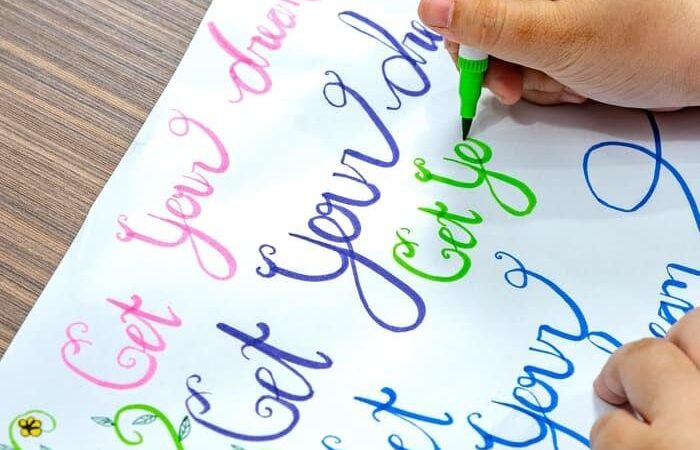 Get Your dream
Get Your dre
Get Yo
Get Your eam